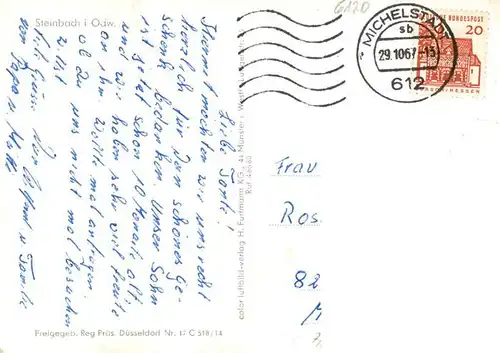 Steinbach i. Odw.
Liebe Tante!
Zuerst möchten wir uns recht
herzlich für Dein schönes Ge-
schenk bedanken. Unser Sohn
ist jetzt schon 10 Monate alt
und wir haben sehr viel Freude
an ihm. Wollte mal anfragen
ob du uns nicht mal besuchen
willst
u. Familie
color luftbild-verlag H. Furtmann KG., 44 Münster i. Westf.
Ruf 46660
Freigegeb. Reg Präs. Düsseldorf Nr. 17 C 518/14
6120
MICHELSTADT
sb
29.10.67-15
612
DEUTSCHE BUNDESPOST
20
Frau
Ros
82